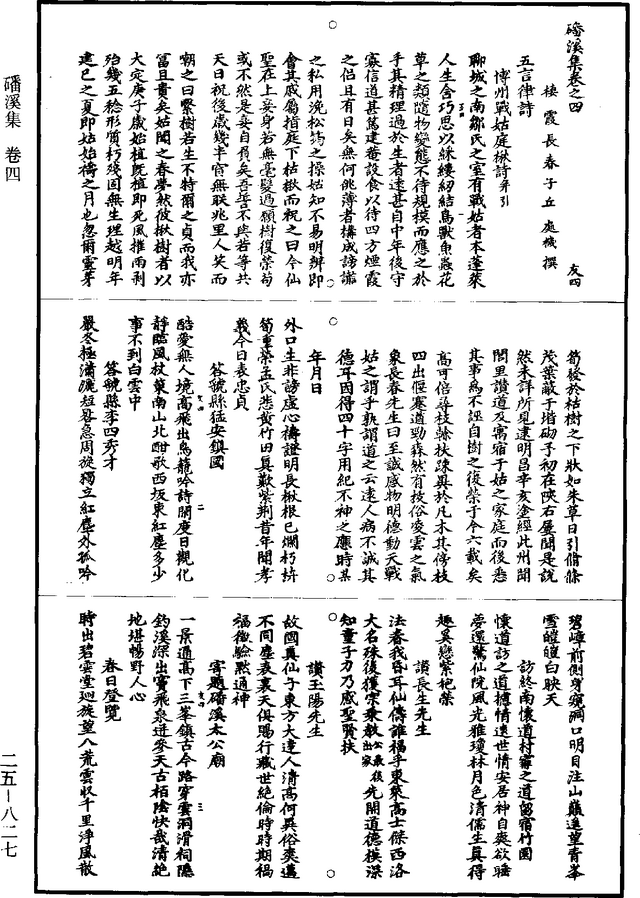 磻溪集卷之四
棲霞長春子丘處機撰
友四
五言律詩
博州戰姑庭楸詩并引
聊城之南鄒氏之室有戰姑者本蓬萊
人生含巧思以綵縷紉結鳥獸魚蟲花
草之類隨物變態不待規模而應之於
手其精理過於生者遠甚自中年後守
寡信道甚篤建菴設食以待四方煙霞
之侶且有日矣無何佻薄者構成謗讟
之私用浼松筠之操姑知不易明辨即
會其戚屬指庭下枯楸而祝之曰今仙
聖在上妾身若無毫髮過願樹復榮苟
或不然是妾自負矣吾誓不與若等共
天日祝後歲幾半宵無联兆里人笑而
嘲之曰繫樹若生不特爾之貞而我亦
富且貴矣姑聞之春夢然彼楸樹者以
大定庚子歲始植既植即死風摧雨剥
殆幾五稔形質朽殘固無生理越明年
建巳之夏即姑始禱之月也忽爾靈芽
筍發於枯樹之下狀如朱草日引脩條
茂葉蔽于堦砌予初在陝右屢聞是說
然未詳所見逮明昌辛亥途經此州聞
閭里讚道及寓宿于姑之家庭而後悉
其事爲不誣自樹之復榮于今六載矣
高可倍尋枝榦扶踈異於凡木其傍枝
四出偃蹇遒勁森然有抜俗凌雲之氣
象長春先生曰至誠感物明德動天戰
姑之謂乎孰謂道之云遠人病不誠其
德耳因得四十字用紀不神之應時某
年月日
外口生非謗虛心禱證明長楸根已爛朽枿
筍重榮孟氏悲黃竹田真歎紫荆昔年聞孝
義今日表忠貞
答虢縣猛安鎮國
酷愛無人境高飛出鳥籠吟詩開度日觀化
靜臨風杖䇿南山北酣歌西坂東紅塵多少
事不到白雲中
答虢縣李四秀才
嚴冬極瀟灑短晷急周旋獨立紅塵外孤吟
碧嶂前側身窺澗口明目注山巔遠望青峯
雪皚皚白映天
訪終南懷道村甯之道留宿竹園
懷道訪之道摅情遠世情安居神自爽欲睡
夢還驚仙院風光雅瓊林月色清儒生真得
趣奚戀紫袍榮
讚長生先生
法眷我昏耳仙儔誰福乎東萊高士傑西洛
大名殊後獲榮乘教先開道德模深
知量子力乃感聖賢扶
讚玉陽先生
故國真仙子東方大達人清高何異俗爽邁
不同塵表裏天俱賜行藏世絕倫時時期禍
福徵驗默通神
寄題磻溪太公廟
一景通高下三峯鎮古今路穿雲洞滑祠隱
釣溪深出竇飛泉迸參天古栢陰快哉清絕
地堪暢野人心
春日登覽
時出碧雲堂廻旋望八荒雲収千里淨風散
磻溪集 卷四
二五—八二七